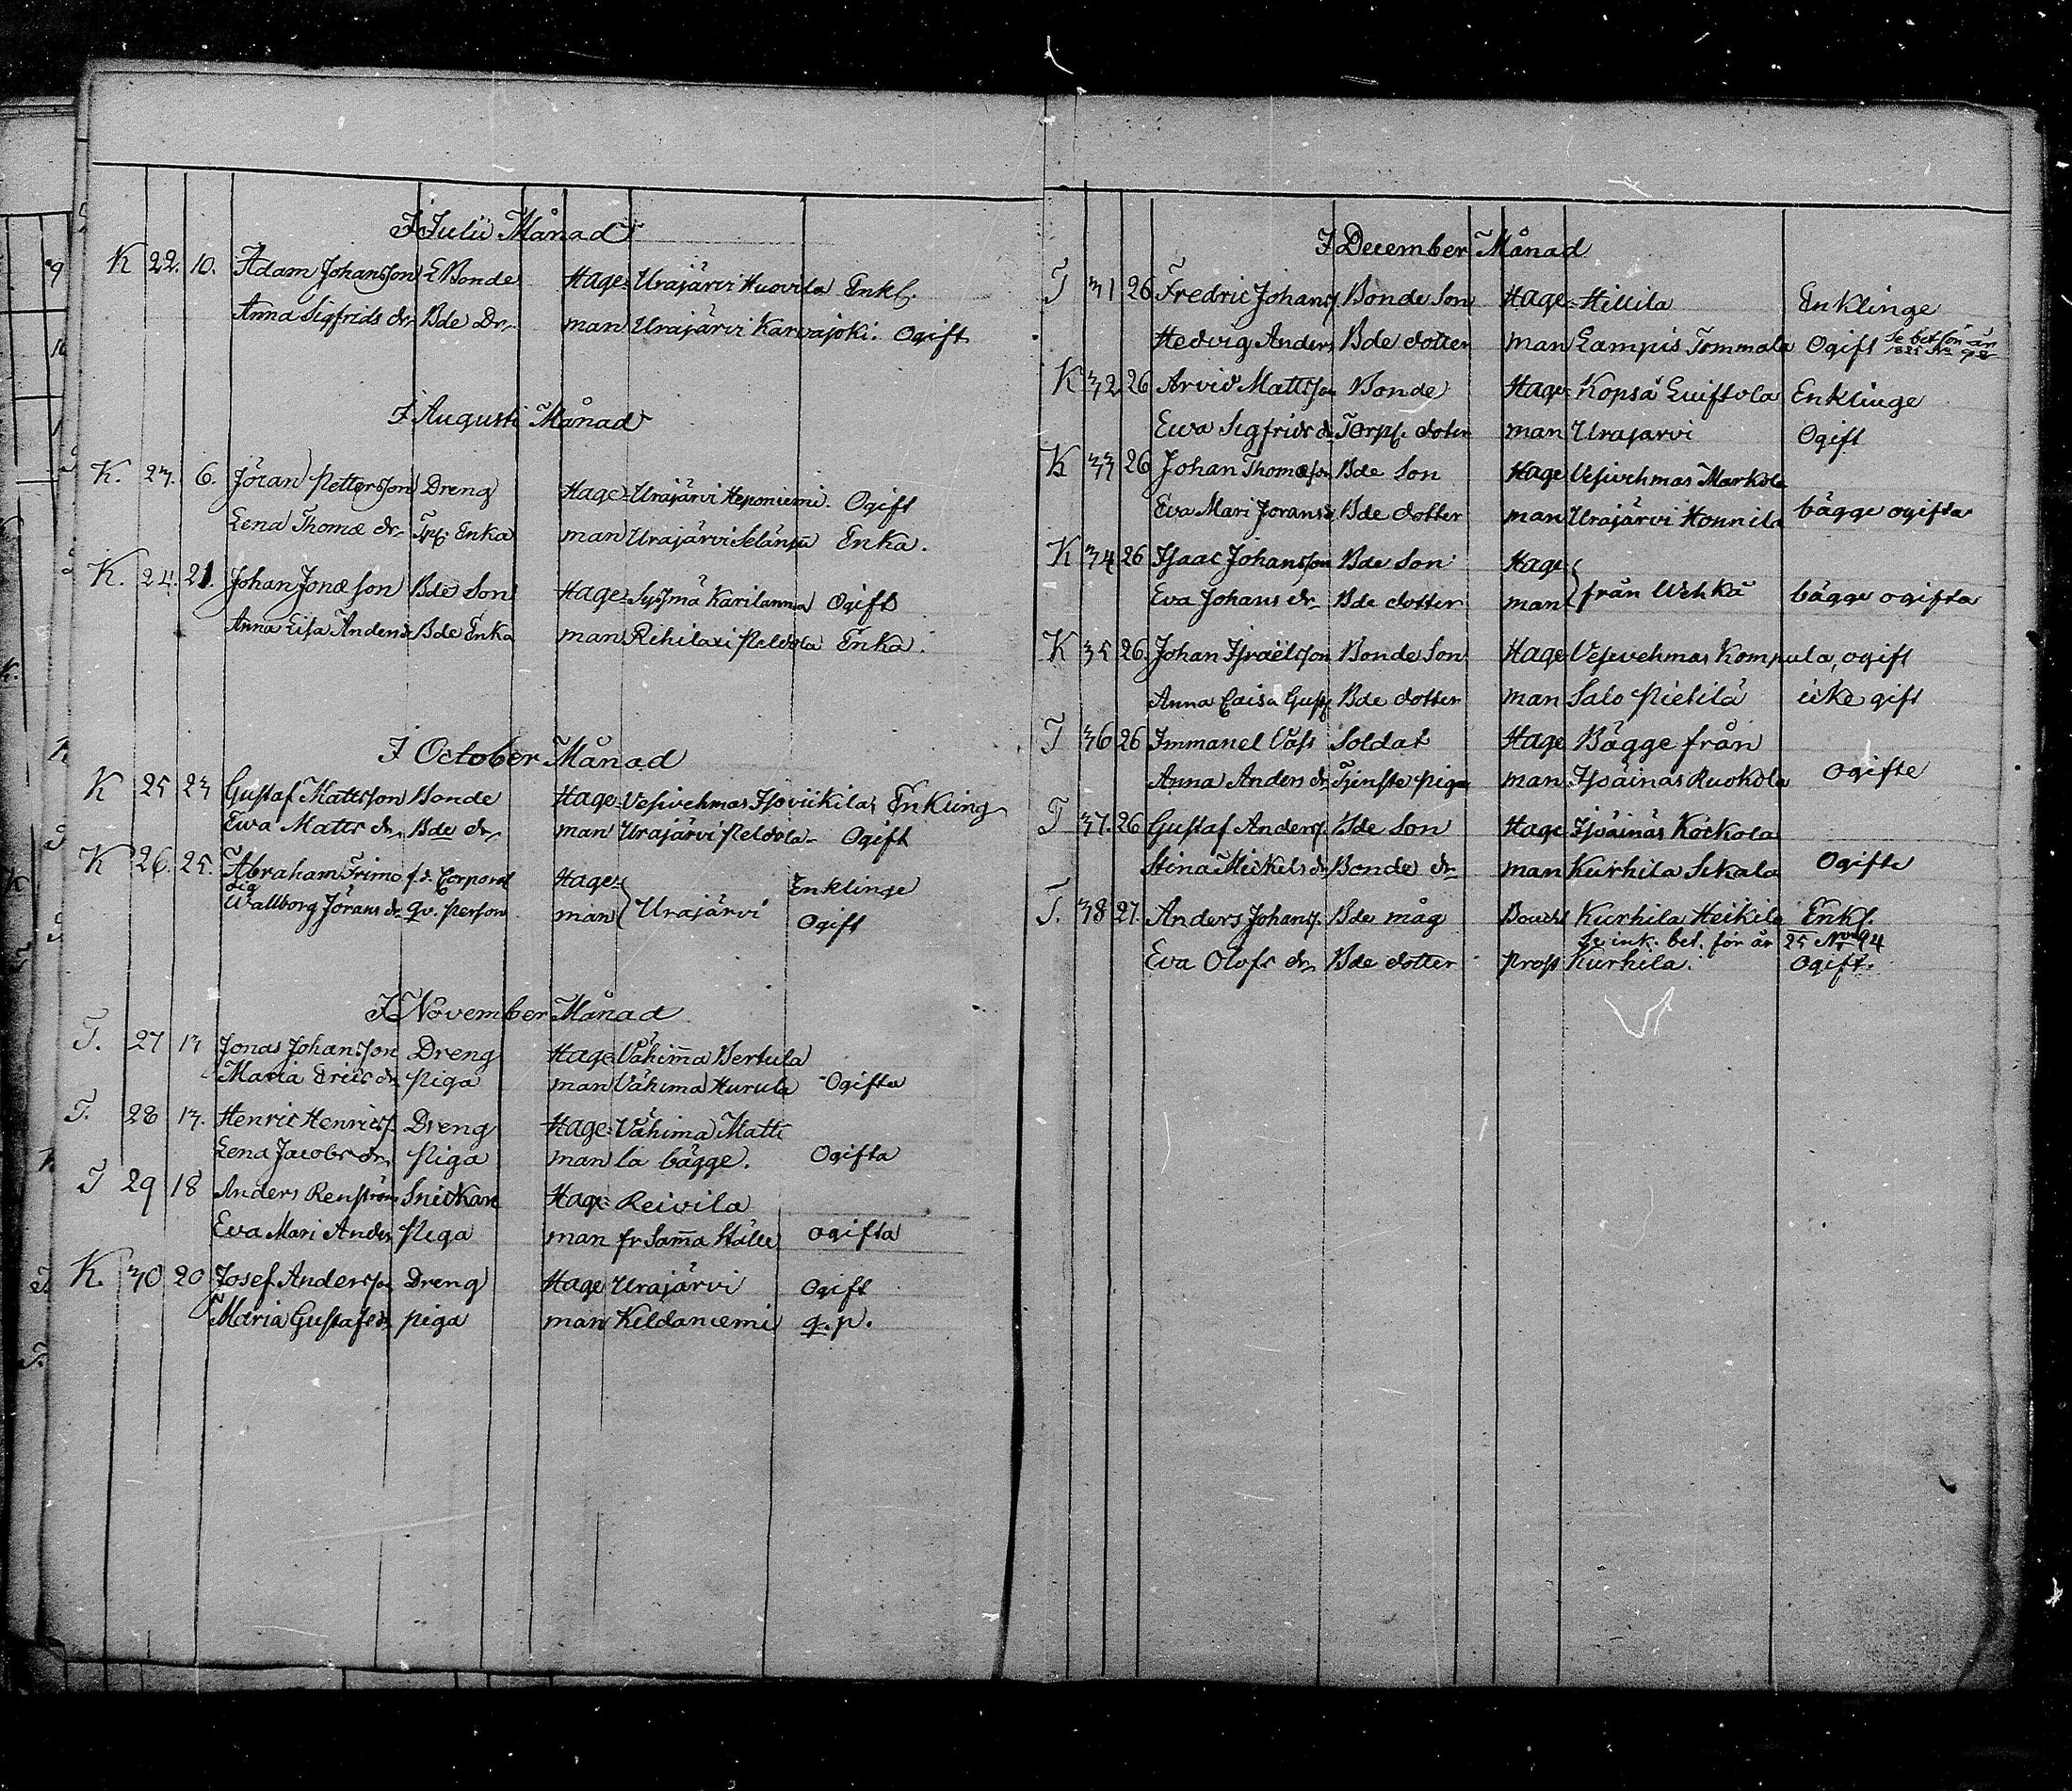 I Julii Månad
K 22. 10. Adam Johansson E Bonde Hage= Urajärvi Huovila Enkl.
Anna Sigfrids dr Bde Dr. man Urajärvi Karvajoki. Ogift
I Augusti Månad
K. 23. 6. Jöran Pettersson Dreng Hage= Urajärvi Heponiemi. Ogift
Lena Thomæ dr Trp. Enka man Urajärvi Enka.
K. 24. 21. Johan Jonæson Bde Son Hage= Sysmä Karilanma Ogift
Anna Lisa Anders dr Bde Enka man Rihilaxi Peldola Enka.
I October Månad
K 25 23 Gustaf Mattsson Bonde Hage= Vesivehmas Isoviikilas Enkling
Ewa Matts dr Bde dr man Urajärvi Peldola Ogift
K 26. 25. Abraham Frimo f.d. Corporal Hage= Enklinge
Wallborg Jörans dr qv. person man Urajärvi Ogift
I November Månad
T. 27 13 Jonas Johansson Dreng Hage= Vähima Bertula
Maria Erics dr Piga man Vähima Hurula Ogifta
T. 28 13. Henric Henricss. Dreng Hage= Vähima Matti
Lena Jacobs dr Piga man la bägge. Ogifta
T 29 18 Anders Renström Snickare Hage= Reivila
Eva Mari Anders Piga man fr Sama Ställe ogifta
K. 30 20 Josef Andersson Dreng Hage Urajärvi Ogift
Maria Gustafs dr piga man Keldaniemi q. p.
I December Månad
T 31 26 Fredric Johanss. Bonde Son Hage= Hillila Enklinge
Hedvig Anders Bde dotter man Lampis Tommola Ogift Se bet för år 1825 No 92
K 32 26 Arvid Mattsson Bonde Hage= Kopsa Enklinge
Ewa Sigfrids dr Torp. doter man Urajarvi Ogift
K 33 26 Johan Thomæson Bde Son Hage Vesivehmas Markola
Eva Mari Jorans dr Bde dotter man Urajärvi Honnila bägge ogifta
K 34 26 Isaac Johansson Bde Son Hage
Eva Johans dr Bde dotter man från Uchka bägge ogifta
K 35 26. Johan Israëlsson Bonde Son Hage Vesivehmas Kompula, ogift
Anna Caisa Gust. Bde dotter man Salo Pietilä icke gift
T 36 26 Immanel Våss Soldat Hage Bägge från
Anna Anders dr Tjenste piga man Isoäinäs Ruokola Ogifte
T 37. 26 Gustaf Anderss. Bde Son Hage Isoäinäs Kockola
Stina Mickels dr Bonde dr man Kurhila Sekala Ogifte
T. 38 27. Anders Johanss. Bde måg Kurhila Heikila Enkl.
Se ink. bet. för år 25 No 94
Eva Olofs dr Bde dotter Kurhila. Ogift.